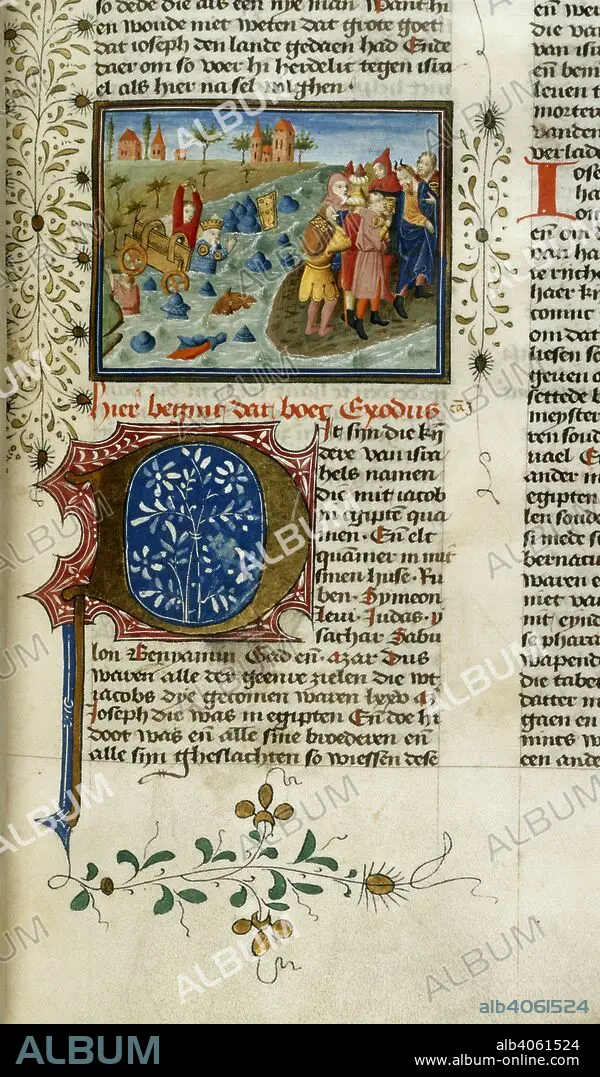 so dede die als een nye man want hi
en woude niet weten dat grote goet
dat ioseph den lande gedaen had Ende
daer om so voer hi herdelic tegen isra
el als hier na sel volghen.
Hier begint dat boec Exodus
Dit sijn die kin
dere van isra
hels namen
die mit iacob
in egipten qua
men. En elc
quamer in mit
sinen huse. Ru
ben. Symeon
leui. Iudas. y
sachar Zabu
lon Beniamin Gad en. azar Dus
waren alle der geenre zielen die wt
iacobs dye gecomen waren lxxv
Ioseph die was in egipten En doe hi
doot was en alle sine broederen en
alle sijn gheslachten so wiessen dese
van isra
leuen t
morter
vanden
verlade
Iose
om
en om d
van ha
haer ki
comt
om dat
geuen o
settede
meyster
ren soud
ander m
egipten
len soude
si mede s
bernatu
waren e
niet wa
se phara
wapend
die tabe
datter m
gaen en
een ande
ALBUM
alb4061524
ALBUM
alb4061524
www.album-online.com